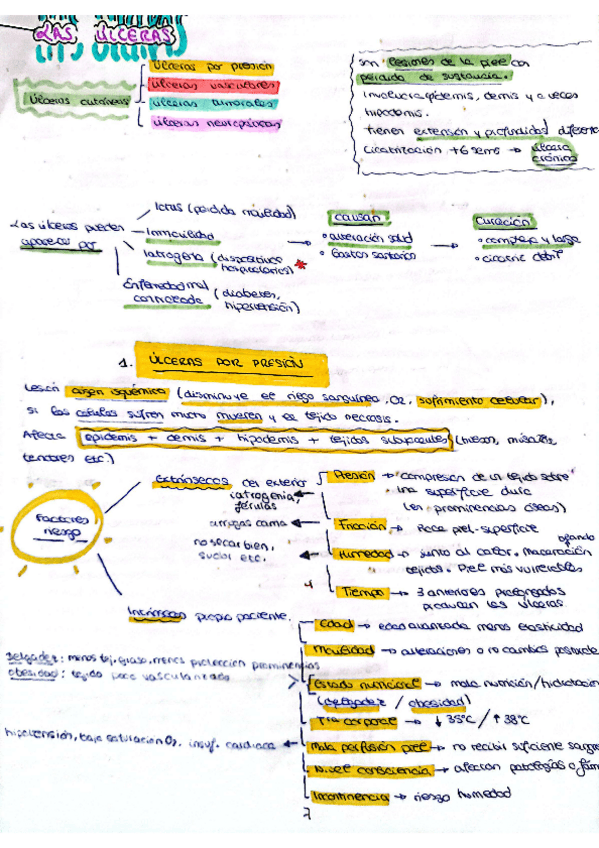 LAS ÚLCERAS
Úlceras cutáneas
Úlceras por presión
Úlceras vasculares
Úlceras tumorales
Úlceras neuropáticas
son lesiones de la piel con
pérdida de sustancia.
Involucra epidermis, dermis y a veces
hipodermis.
tienen extensión y profundidad diferente
Cicatrización +6 sems → úlcera
crónica
Las úlceras pueden
aparecer por
Ictus (pérdida movilidad)
Inmovilidad
Iatrogenia (dispositivos
hospitalarios) *
Enfermedad mal
controlada (diabetes,
hipertensión)
causan
• alteración salud
• Gastos sanitario
Curación
• compleja y larga
• cicatriz débil
1. ÚLCERAS POR PRESIÓN
Lesión origen isquémico (disminuye el riego sanguíneo, O2, sufrimiento celular),
si las células sufren mucho mueren y es tejido necrosis.
Afecta epidermis + dermis + hipodermis + tejidos subyacentes (hueso, músculo,
tendones etc.)
Factores
riesgo
Extrínsecos del exterior
iatrogenia,
férulas
arrugas cama
no secar bien,
sudor etc.
Presión → "compresión de un tejido sobre"
una superficie dura
(en prominencias óseas)
Fricción → Roce piel-superficie
Humedad → junto al calor, maceración
tejidos. Piel más vulnerables
Tiempo → 3 anteriores prolongados
provocan las úlceras
Intrínsecos propio paciente.
Edad → edad avanzada menos elasticidad
Movilidad → alteraciones o no cambios postural
Delgadez: menos tej. graso, menos protección prominencias
obesidad: tejido poco vascularizado
Estado nutricional → mala nutrición/hidratación
(delgadez / obesidad)
Tª corporal → ↓ 35ºC / ↑ 38ºC
hipotensión, baja saturación O2, insuf. cardiaca ←
Mala perfusión piel → no recibir suficiente sangre
Nivel consciencia → afectan patologías o fárm
Incontinencia → riesgo humedad